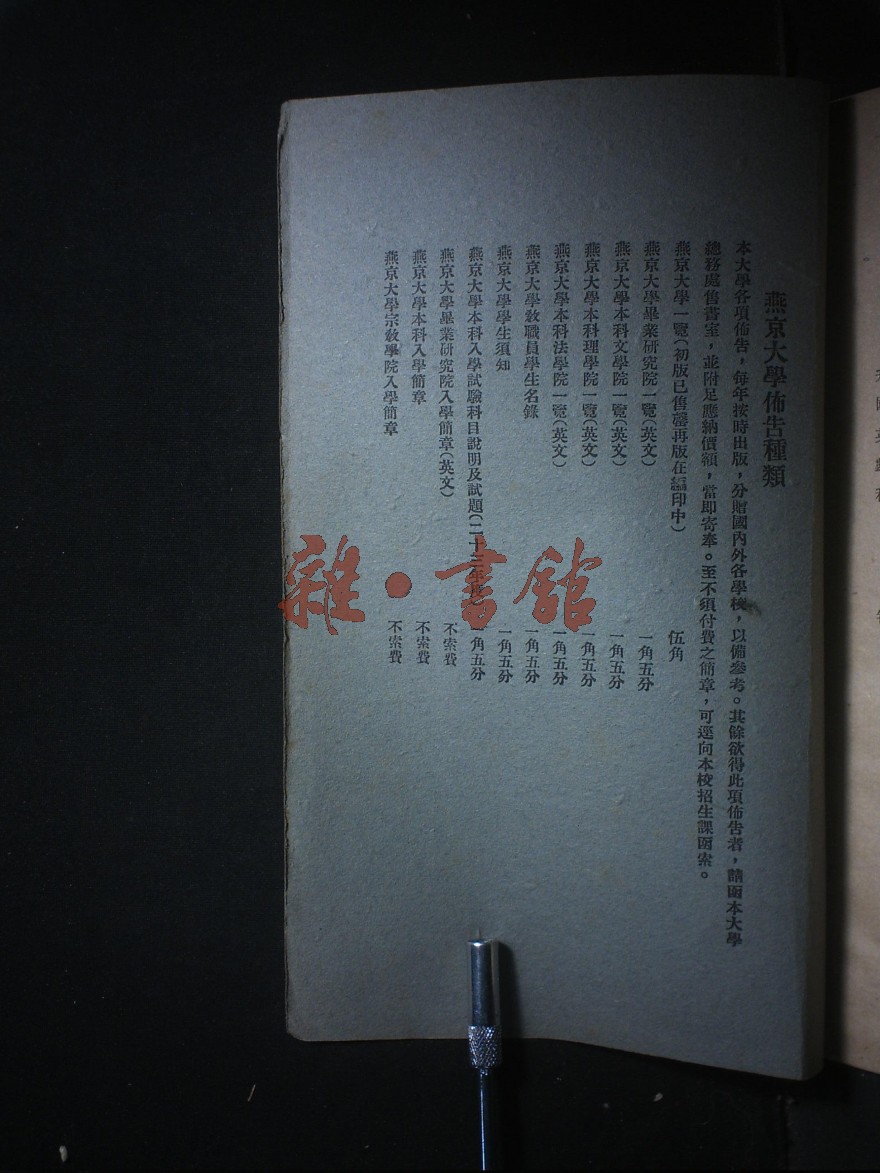 燕京大學佈告種類
本大學各項佈告，每年按時出版，分贈國內外各學校，以備參考。其餘欲得此項佈告者，請函本大學
總務處售書室，並附足應納價額，當即寄奉。至不須付費之簡章，可逕向本校招生課函索。
燕京大學一覽（初版已售罄再版在編印中） 伍角
燕京大學畢業研究院一覽（英文） 一角五分
燕京大學本科文學院一覽（英文） 一角五分
燕京大學本科理學院一覽（英文） 一角五分
燕京大學本科法學院一覽（英文） 一角五分
燕京大學教職員學生名錄 一角五分
燕京大學學生須知 一角五分
燕京大學本科入學試驗科目說明及試題（二十三年 一角五分
燕京大學畢業研究院入學簡章（英文） 不索費
燕京大學本科入學簡章 不索費
燕京大學宗教學院入學簡章 不索費
雜·書館